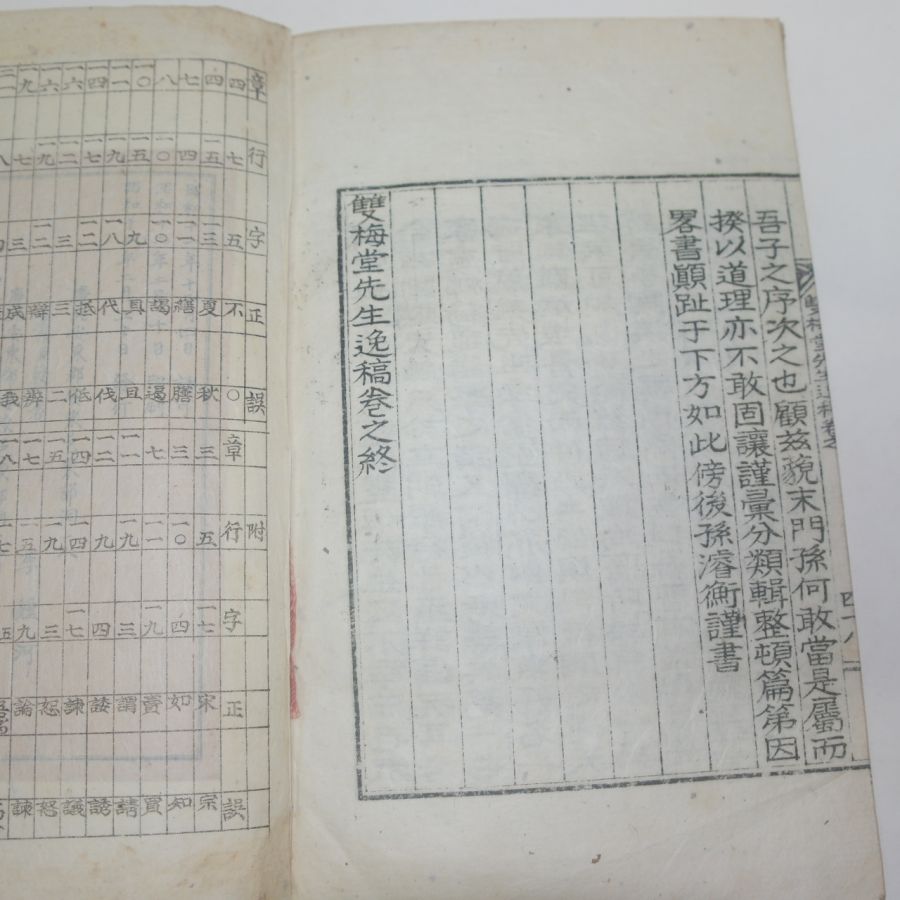 吾子之序次之也顧茲貌末門孫何敢當是屬而
揆以道理亦不敢固讓謹彙分類輯整頓篇第因
畧書顚趾于下方如此傍後孫濬衡謹書
雙梅堂先生逸稿卷之終
雙梅堂先生逸稿卷之 四十八
章 行 字 正 誤 附
四 七 五 不 〇 章 行 字 正 誤
四 一五 三 夏 秋 三 五 一七 宋 宗
七 四 一一 繕 膳 三 一〇 四 如 知
八 一〇 一〇 謁 遏 七 一一 一九 賣 買
一〇 一五 九 具 且 一一 一九 三 謂 請
一一 一九 一八 代 伐 一二 九 四 諉 誘
一四 一七 一二 抵 低 一四 一四 一七 諫 議
一六 一二 三 三 二 一五 一九 三 恕 怒
一六 一九 一二 辯 辨 一七 五 九 論 諫
一九 七 三 成 我 一八